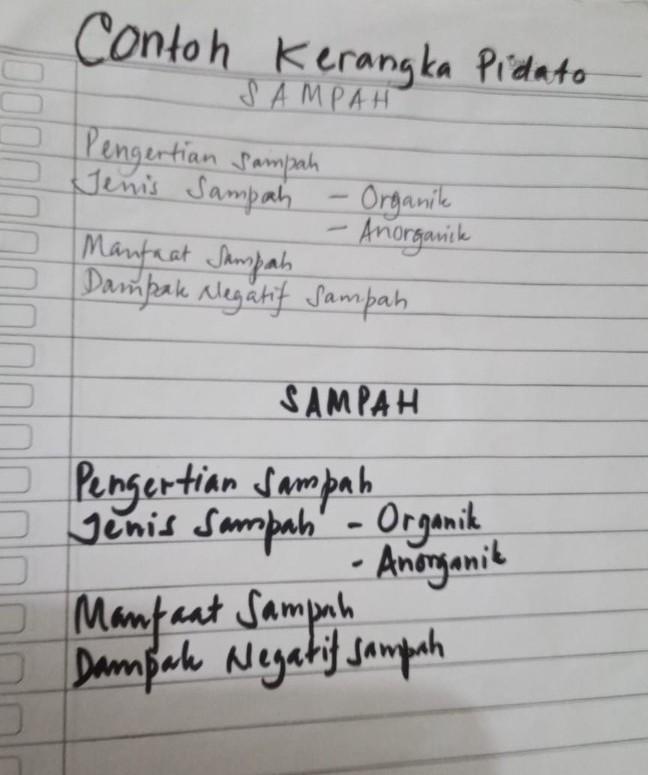 Contoh Kerangka Pidato
SAMPAH
Pengertian Sampah
Jenis Sampah - Organik
- Anorganik
Manfaat Sampah
Dampak Negatif Sampah
SAMPAH
Pengertian Sampah
Jenis Sampah - Organik
- Anorganik
Manfaat Sampah
Dampak Negatif Sampah